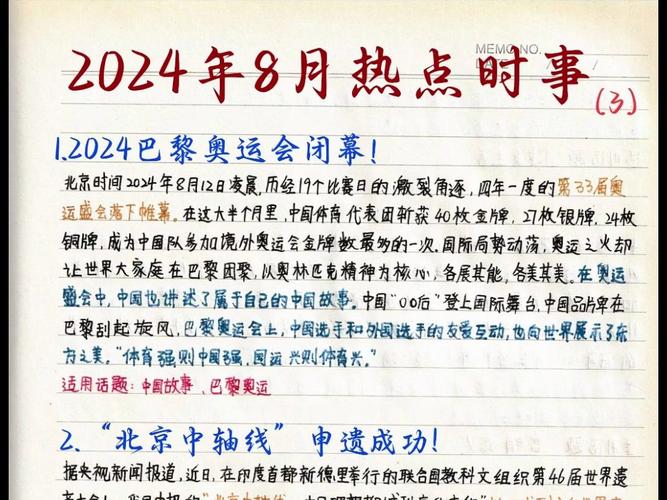 MEMO NO.
2024年8月热点时事
(3)
1.2024巴黎奥运会闭幕!
北京时间2024年8月12日凌晨,历经19个比赛日的激裂角逐,四年一度的第33届奥
运盛会落下帷幕。在这大半个月里,中国体育代表团斩获40枚金牌,27枚银牌,24枚
铜牌,成为中国队参加境外奥运会金牌数最多的一次。国际局势动荡,奥运之火却
让世界大家庭在巴黎团聚,以奥林匹克精神为核心,各展其能,各美其美。在奥运
盛会中,中国也讲述了属于自己的中国故事。中国"00后"登上国际舞台,中国品牌在
巴黎刮起旋风,巴黎奥运会上,中国选手和外国选手的友爱互动,也向世界展示了东
方之美。"体育强则中国强,国运兴则体育兴。"
适用话题:中国故事、巴黎奥运
2."北京中轴线"申遗成功!
据央视新闻报道,近日,在印度首都新德里举行的联合国教科文组织第46届世界遗